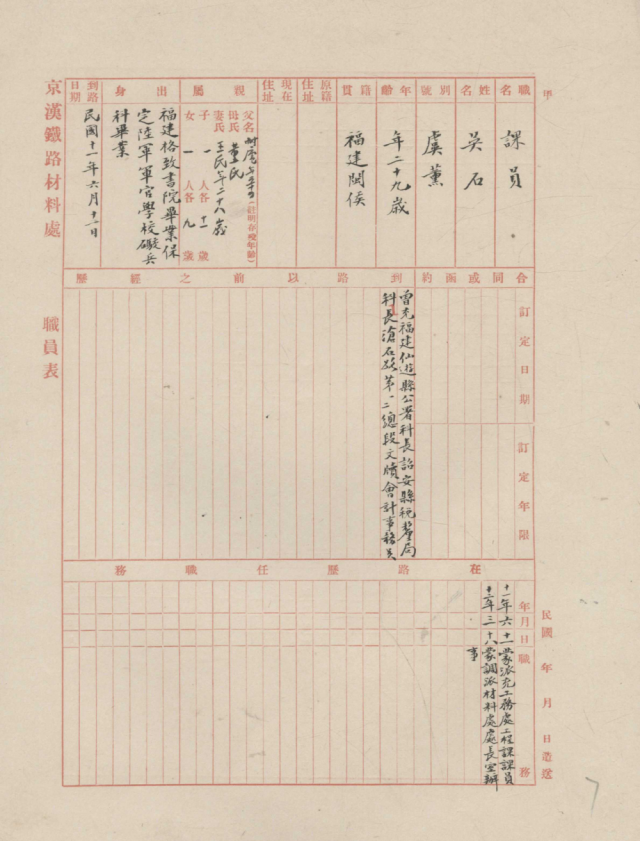 甲
職名 課員
姓名 吴石
別號 虞薰
年齡 年二十九歲
籍貫 福建閩侯
原籍住址
現在住址
親屬
父名 七十 (註明存歿年齡)
母氏 董氏
妻氏 王氏年二十八歲
子 一 人各 十一 歲
女 一 人各 九 歲
出身
福建格致書院畢業保
定陸軍軍官學校礮兵
科畢業
到路日期 民國十一年六月十一日
京漢鐵路材料處 職員表
合同或函約
訂定日期
訂定年限
到路以前之經歷
曾充福建仙遊縣公署科長詔安縣稅釐局
科長滄石路第一二總段文牘會計事務員
在路歷任職務
年月日 職務
十一年六十一蒙派充工務處工程課課員
十二年三十八蒙調派材料處處長室辦
事
民國 年 月 日造送
7